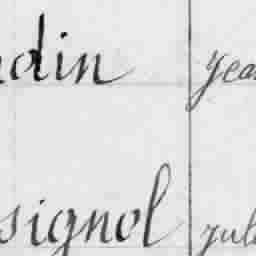 ndin yea
signol jul